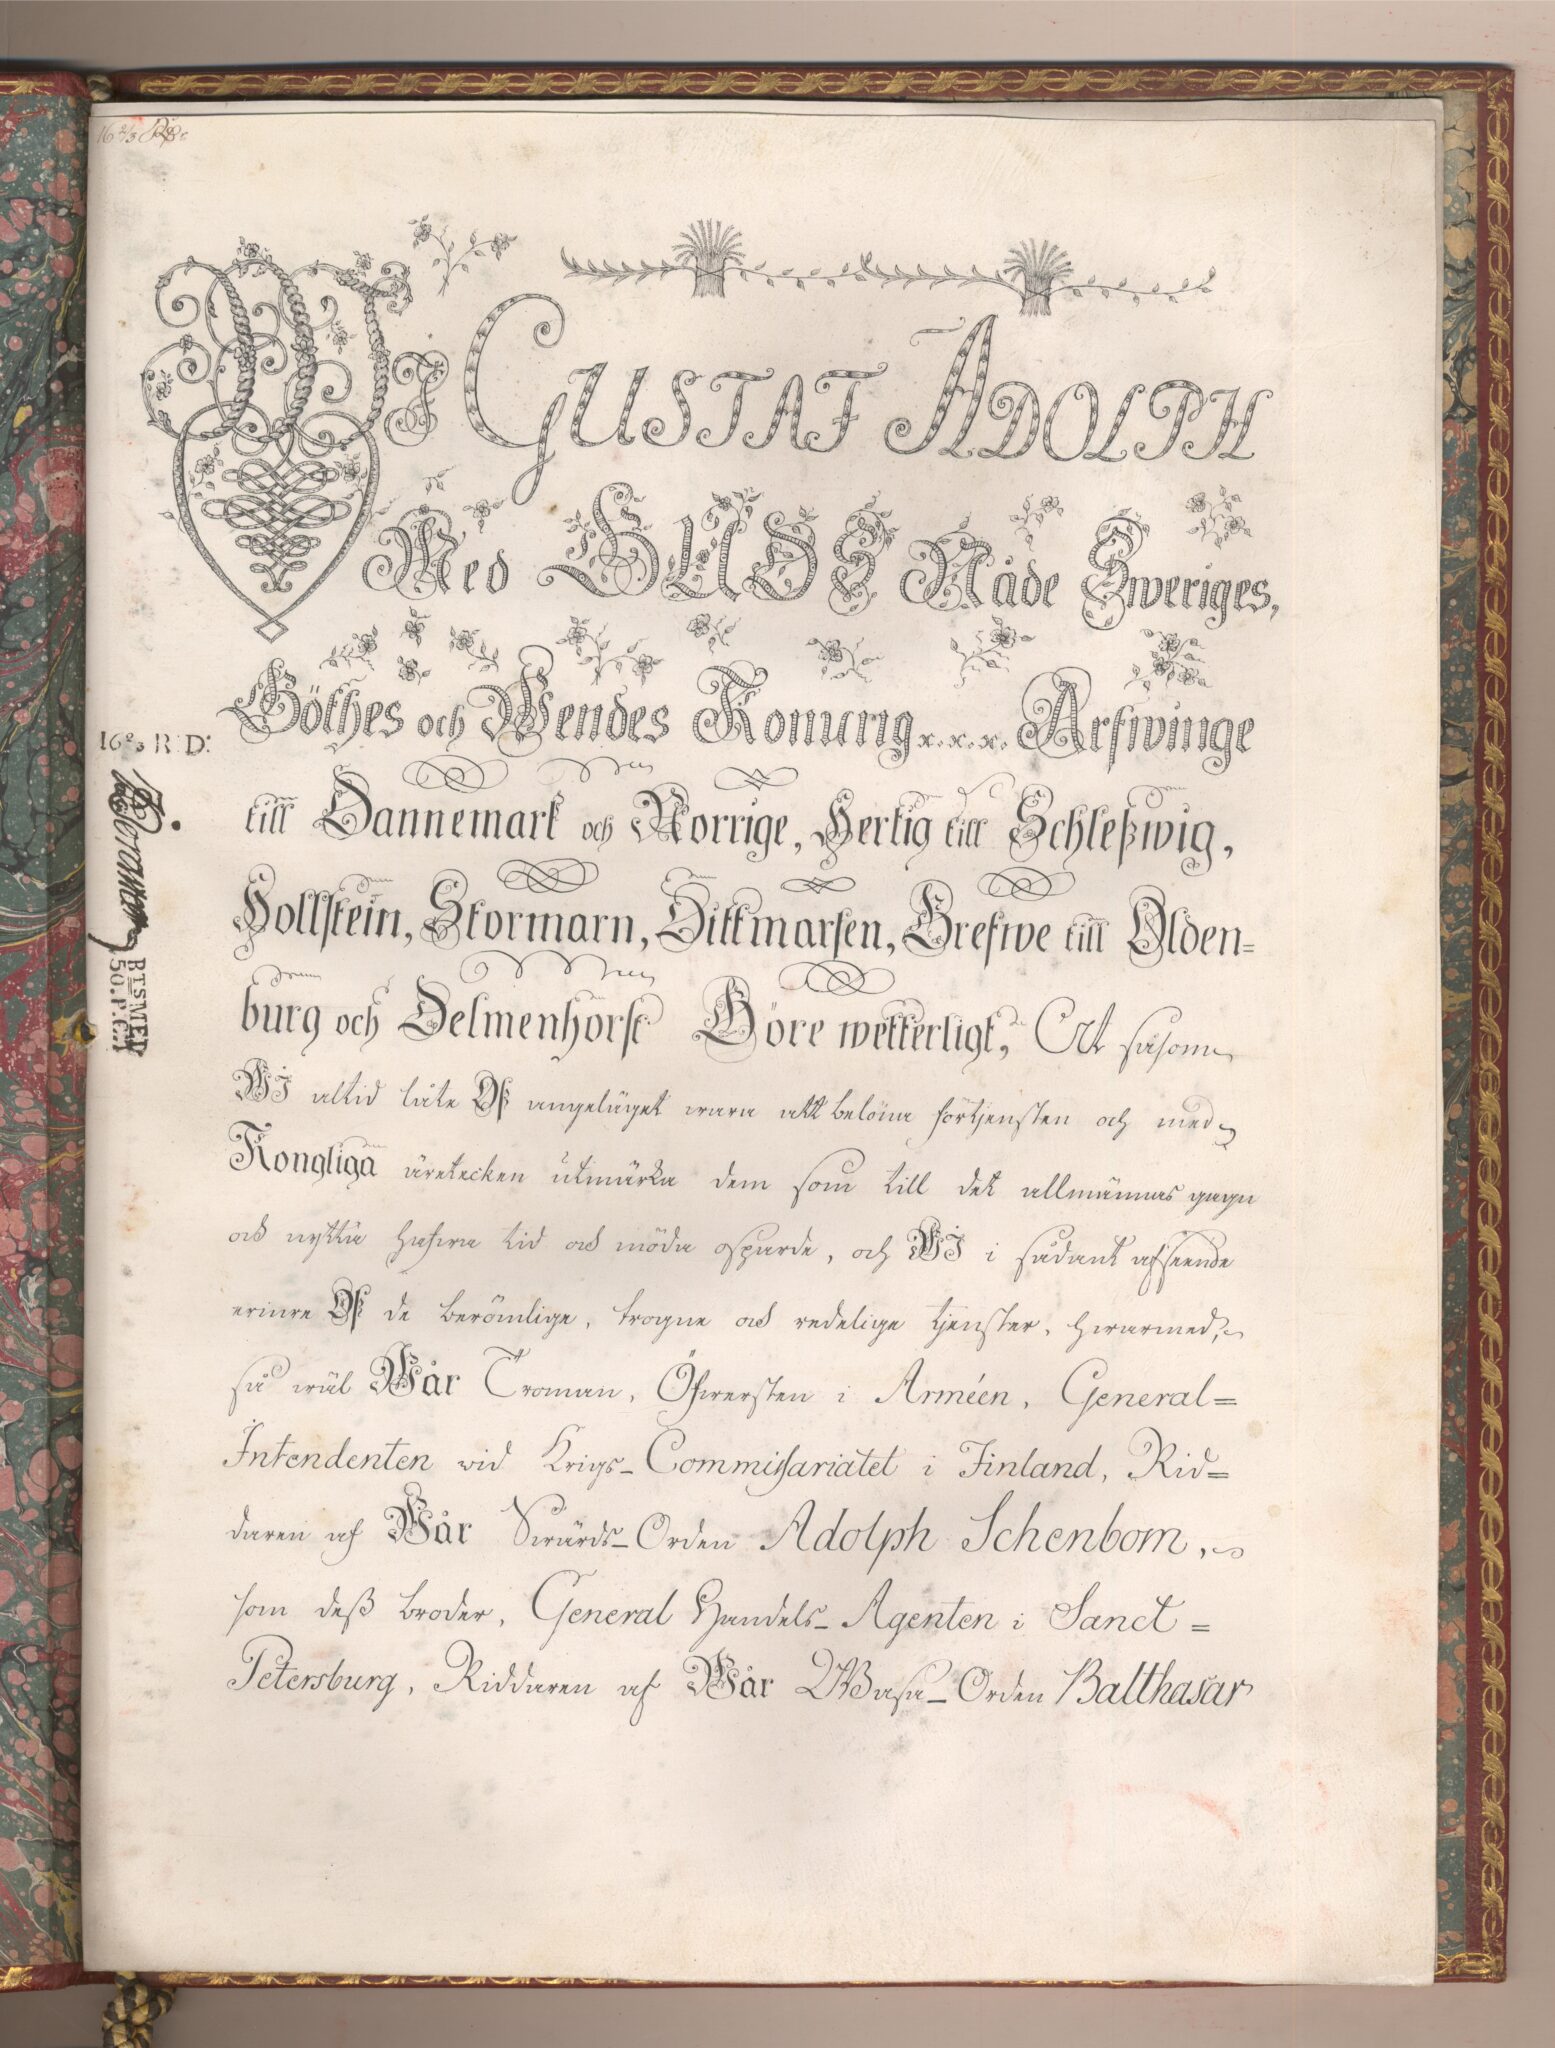 16 2/3 Rd
Wi GUSTAF ADOLPH
Med GUDS Nåde Sweriges,
Göthes och Wendes Konung x. x. x. Arfwinge
till Dannemark och Norrige, Hertig till Schleßwig,
Hollstein, Stormarn, Dittmarsen, Grefwe till Olden=
burg och Delmenhorst Göre wetterligt, At såsom
WI altid låte Oß angeläget wara att belöna förtjensten och med
Kongliga äretecken utmärka dem som till det allmännas gagn
och nytta hafwa tid och möda ospard, och WI i sådant afseende
erinre Oß de berömlige, trogne och redelige tjenster, hwarmed,
så wäl Wår Troman, Öfwersten i Arméen, General=
Intendenten wid Krigs-Commissariatet i Finland, Rid=
daren af Wår Swärds-Orden Adolph Schenbom,
som deß broder, General Handels-Agenten i Sanct=
Petersburg, Riddaren af Wår Wasa-Orden Balthasar
16 2/3 R:D:
BTSMEN
50. P. C:T